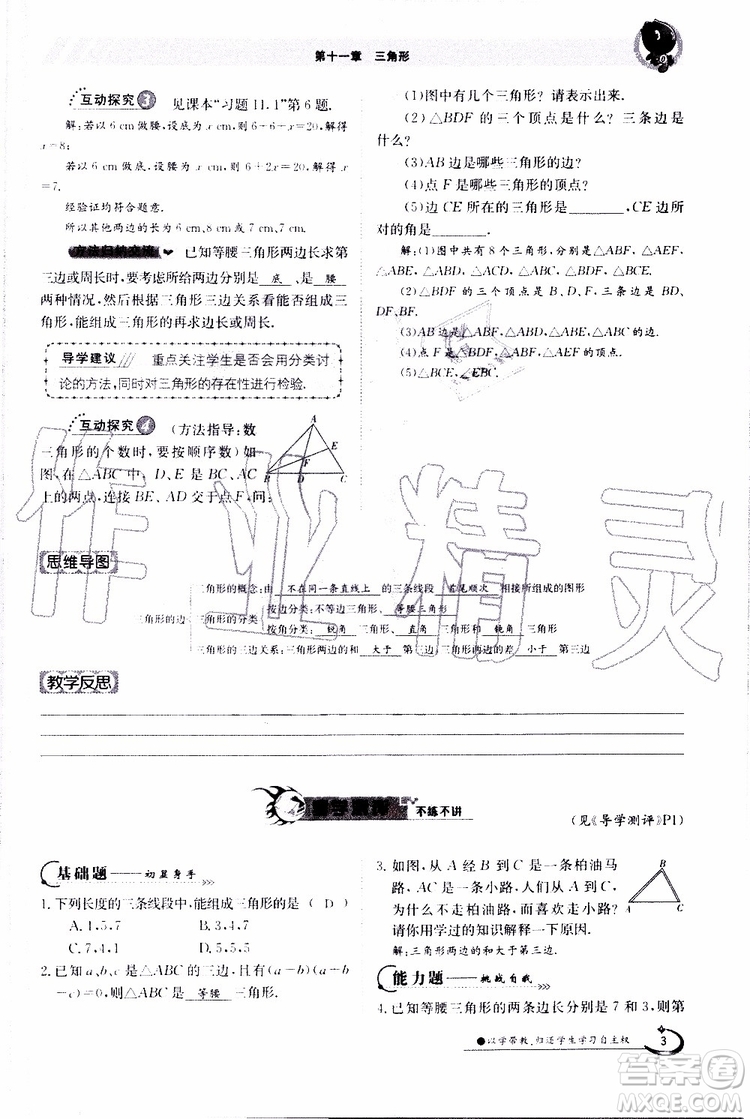 第十一章 三角形
互动探究3 见课本“习题11.1”第6题.
解:若以6 cm做腰,设底为x cm,则6+6+x=20,解得
x=8;
若以6 cm做底,设腰为x cm,则6+2x=20,解得x=
7.
经验证均符合题意.
所以其他两边的长为
6 cm,8 cm或7 cm,7 cm.
方法归纳交流 已知等腰三角形两边长求第
三边或周长时,要考虑所给两边分别是 底 、是 腰
两种情况,然后根据三角形三边关系看能否组成三角
形,能组成三角形的再求边长或周长.
导学建议 重点关注学生是否会用分类讨
论的方法,同时对三角形的存在性进行检验.
互动探究4 (方法指导:数
三角形的个数时,要按顺序数)如
图,在△ABC中,D、E是BC、AC
上的两点,连接BE、AD交于点F,问:
A
E
F
B D C
(1)图中有几个三角形?请表示出来.
(2)△BDF的三个顶点是什么?三条边是
什么?
(3)AB边是哪些三角形的边?
(4)点F是哪些三角形的顶点?
(5)边CE所在的三角形是________,CE边所
对的角是________.
解:(1)图中共有8个三角形,分别是△ABF、△ABD、
(2)△BDF的三个顶点是B、D、F,三条边是BD、
DF、BF.
思维导图
三角形的边
三角形的概念:由 不在同一条直线上 的三条线段 首尾顺次 相接所组成的图形
三角形的分类
按边分类:不等边三角形、 等腰三角形
按角分类: 锐角 三角形、 直角 三角形和 钝角 三角形
三角形的三边关系:三角形两边的和 大于 第三边,三角形两边的差 小于 第三边
教学反思
不练不讲
(见《导学测评》P1)
基础题——初显身手
1.下列长度的三条线段中,能组成三角形的是 ( D )
A.1,5,7 B.3,4,7
C.7,4,1 D.5,5,5
2.已知a、b、c是△ABC的三边,且有(a-b)(a-b
-c)=0,则△ABC是 等腰 三角形.
3.如图,从A经B到C是一条柏油马
路,AC是一条小路,人们从A到C
为什么不走柏油路,而喜欢走小路?
请你用学过的知识解释一下原因.
解:三角形两边的和大于第三边.
B
A C
能力题——挑战自我
4.已知等腰三角形的两条边长分别是7和3,则第
●以学带教,归还学生学习自主权
3
作业精灵
答案圈
MXQE.COM